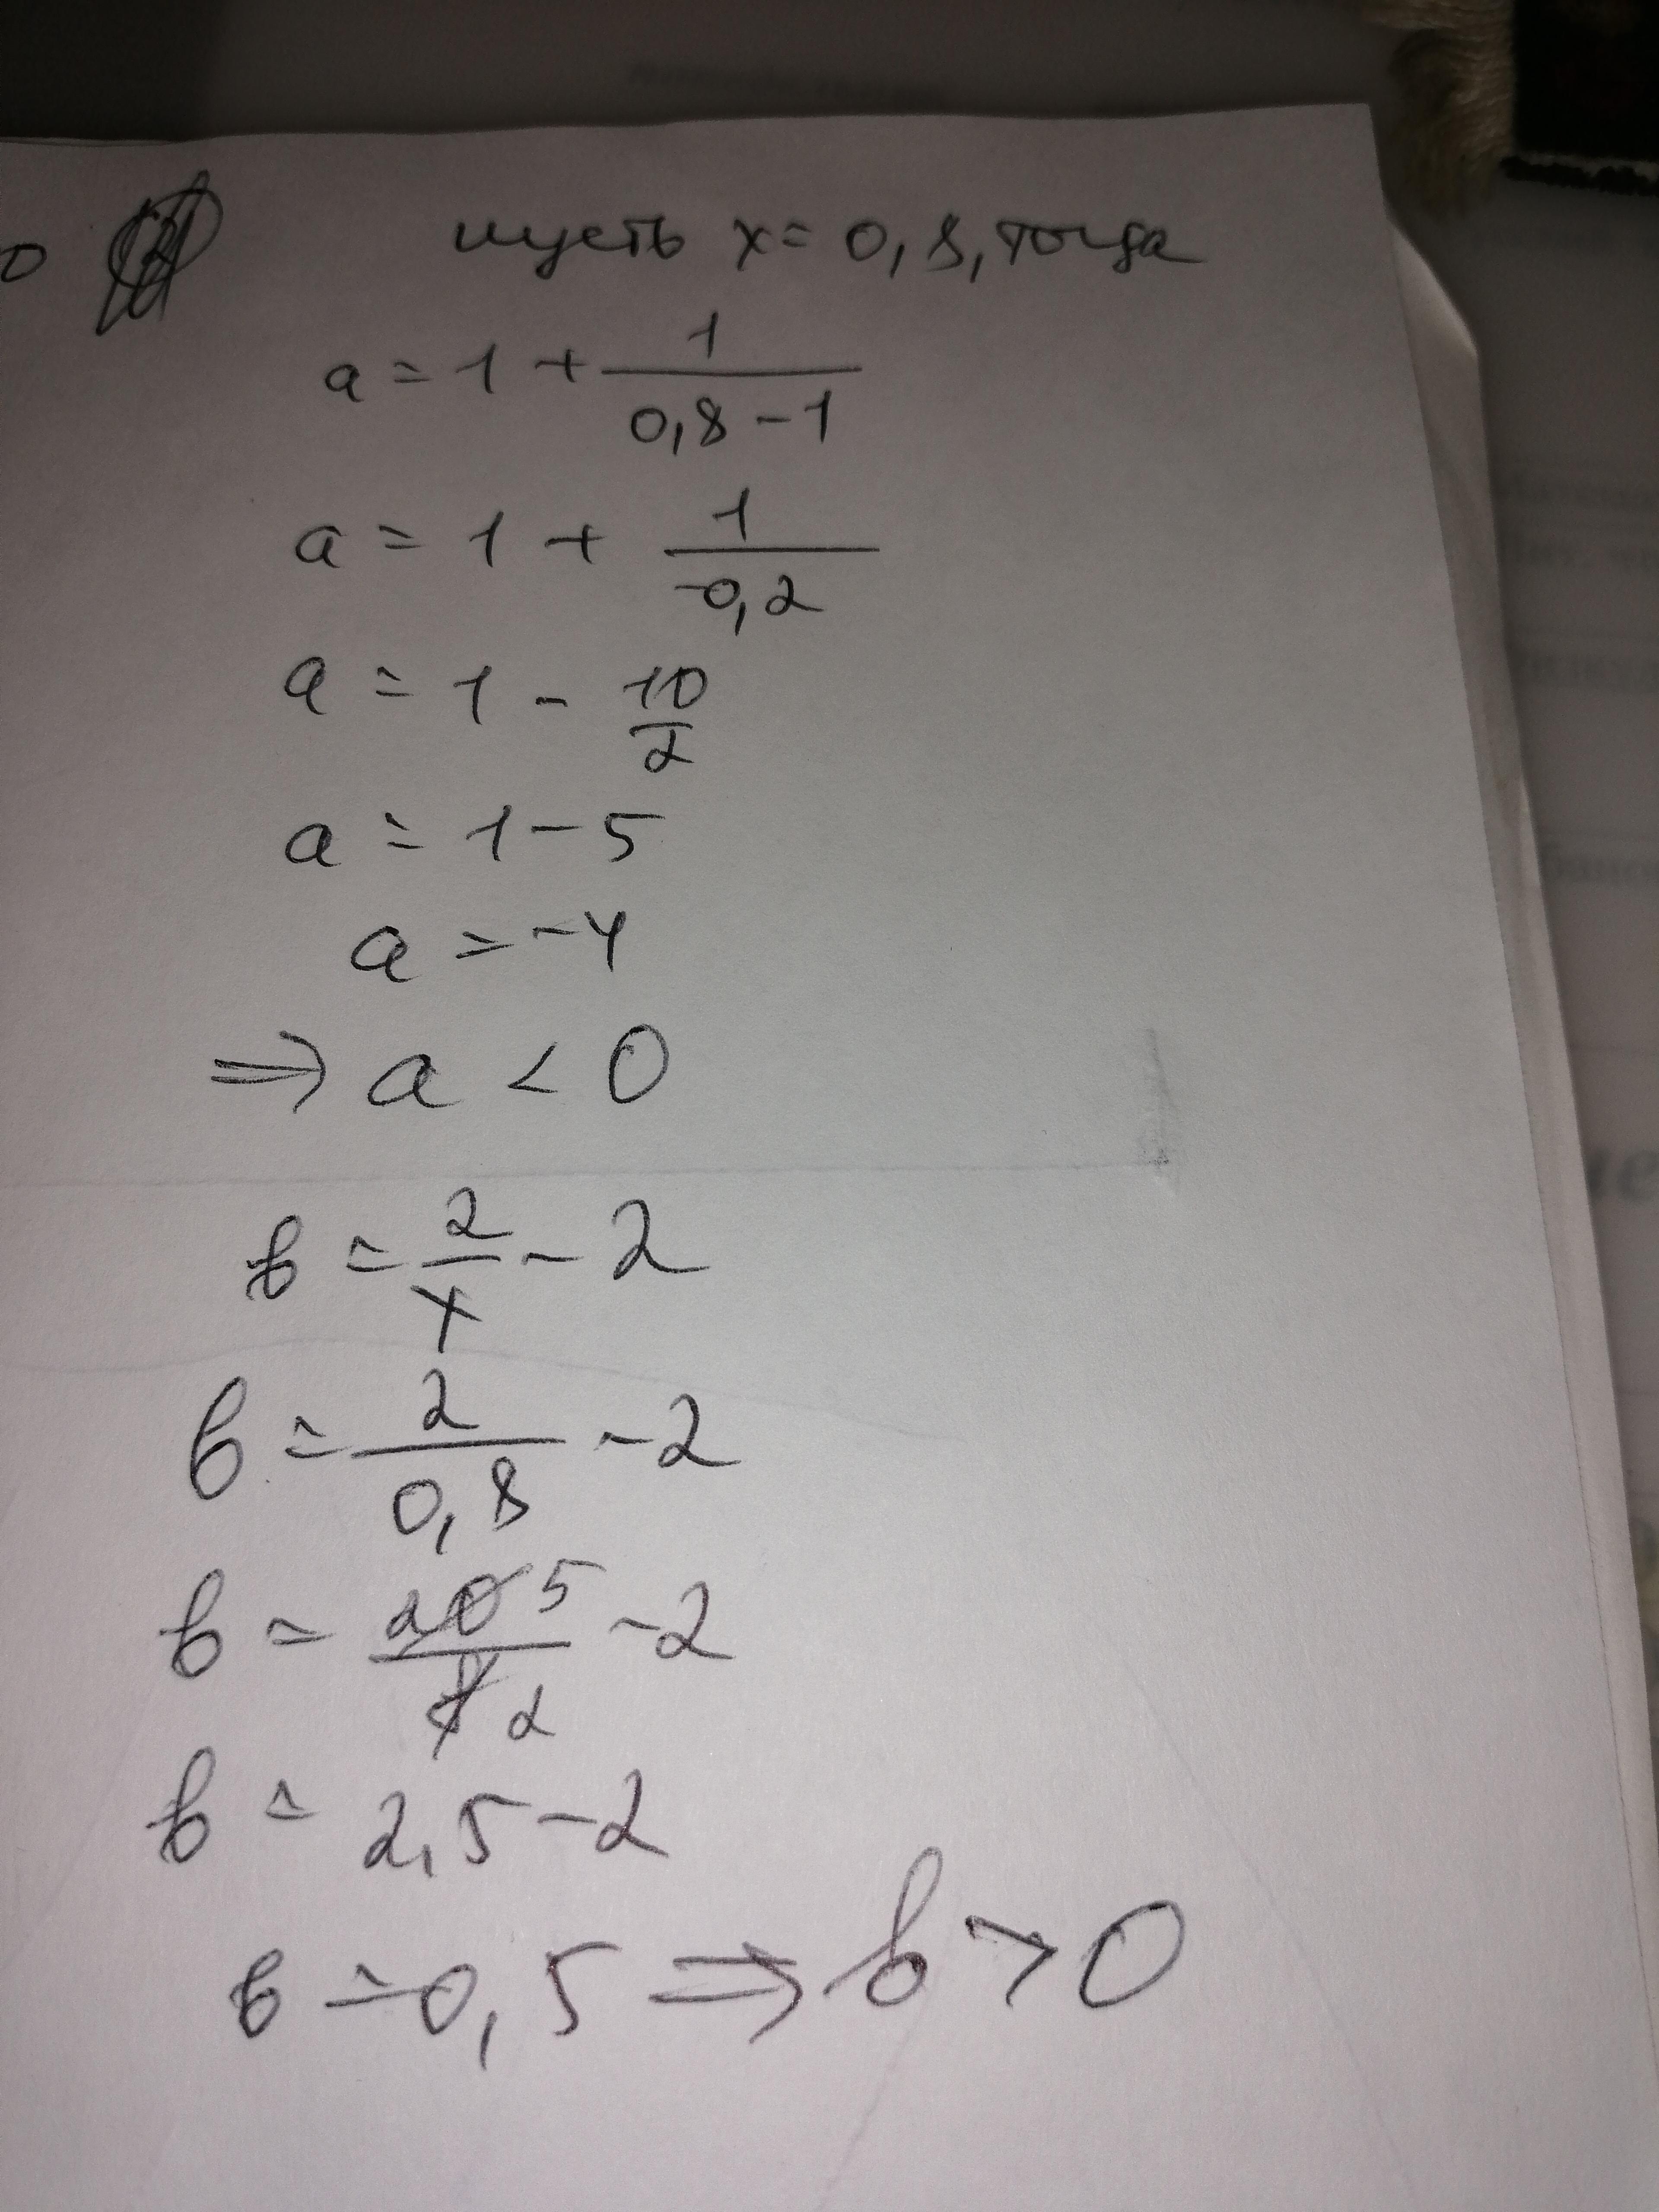 пусть x = 0,8, тогда
a = 1 + 1/(0,8 - 1)
a = 1 + 1/(-0,2)
a = 1 - 10/2
a = 1 - 5
a = -4
⇒ a < 0
b = 2/x - 2
b = 2/0,8 - 2
b = 20 5/8 2 - 2
b = 2,5 - 2
b = 0,5 ⇒ b > 0